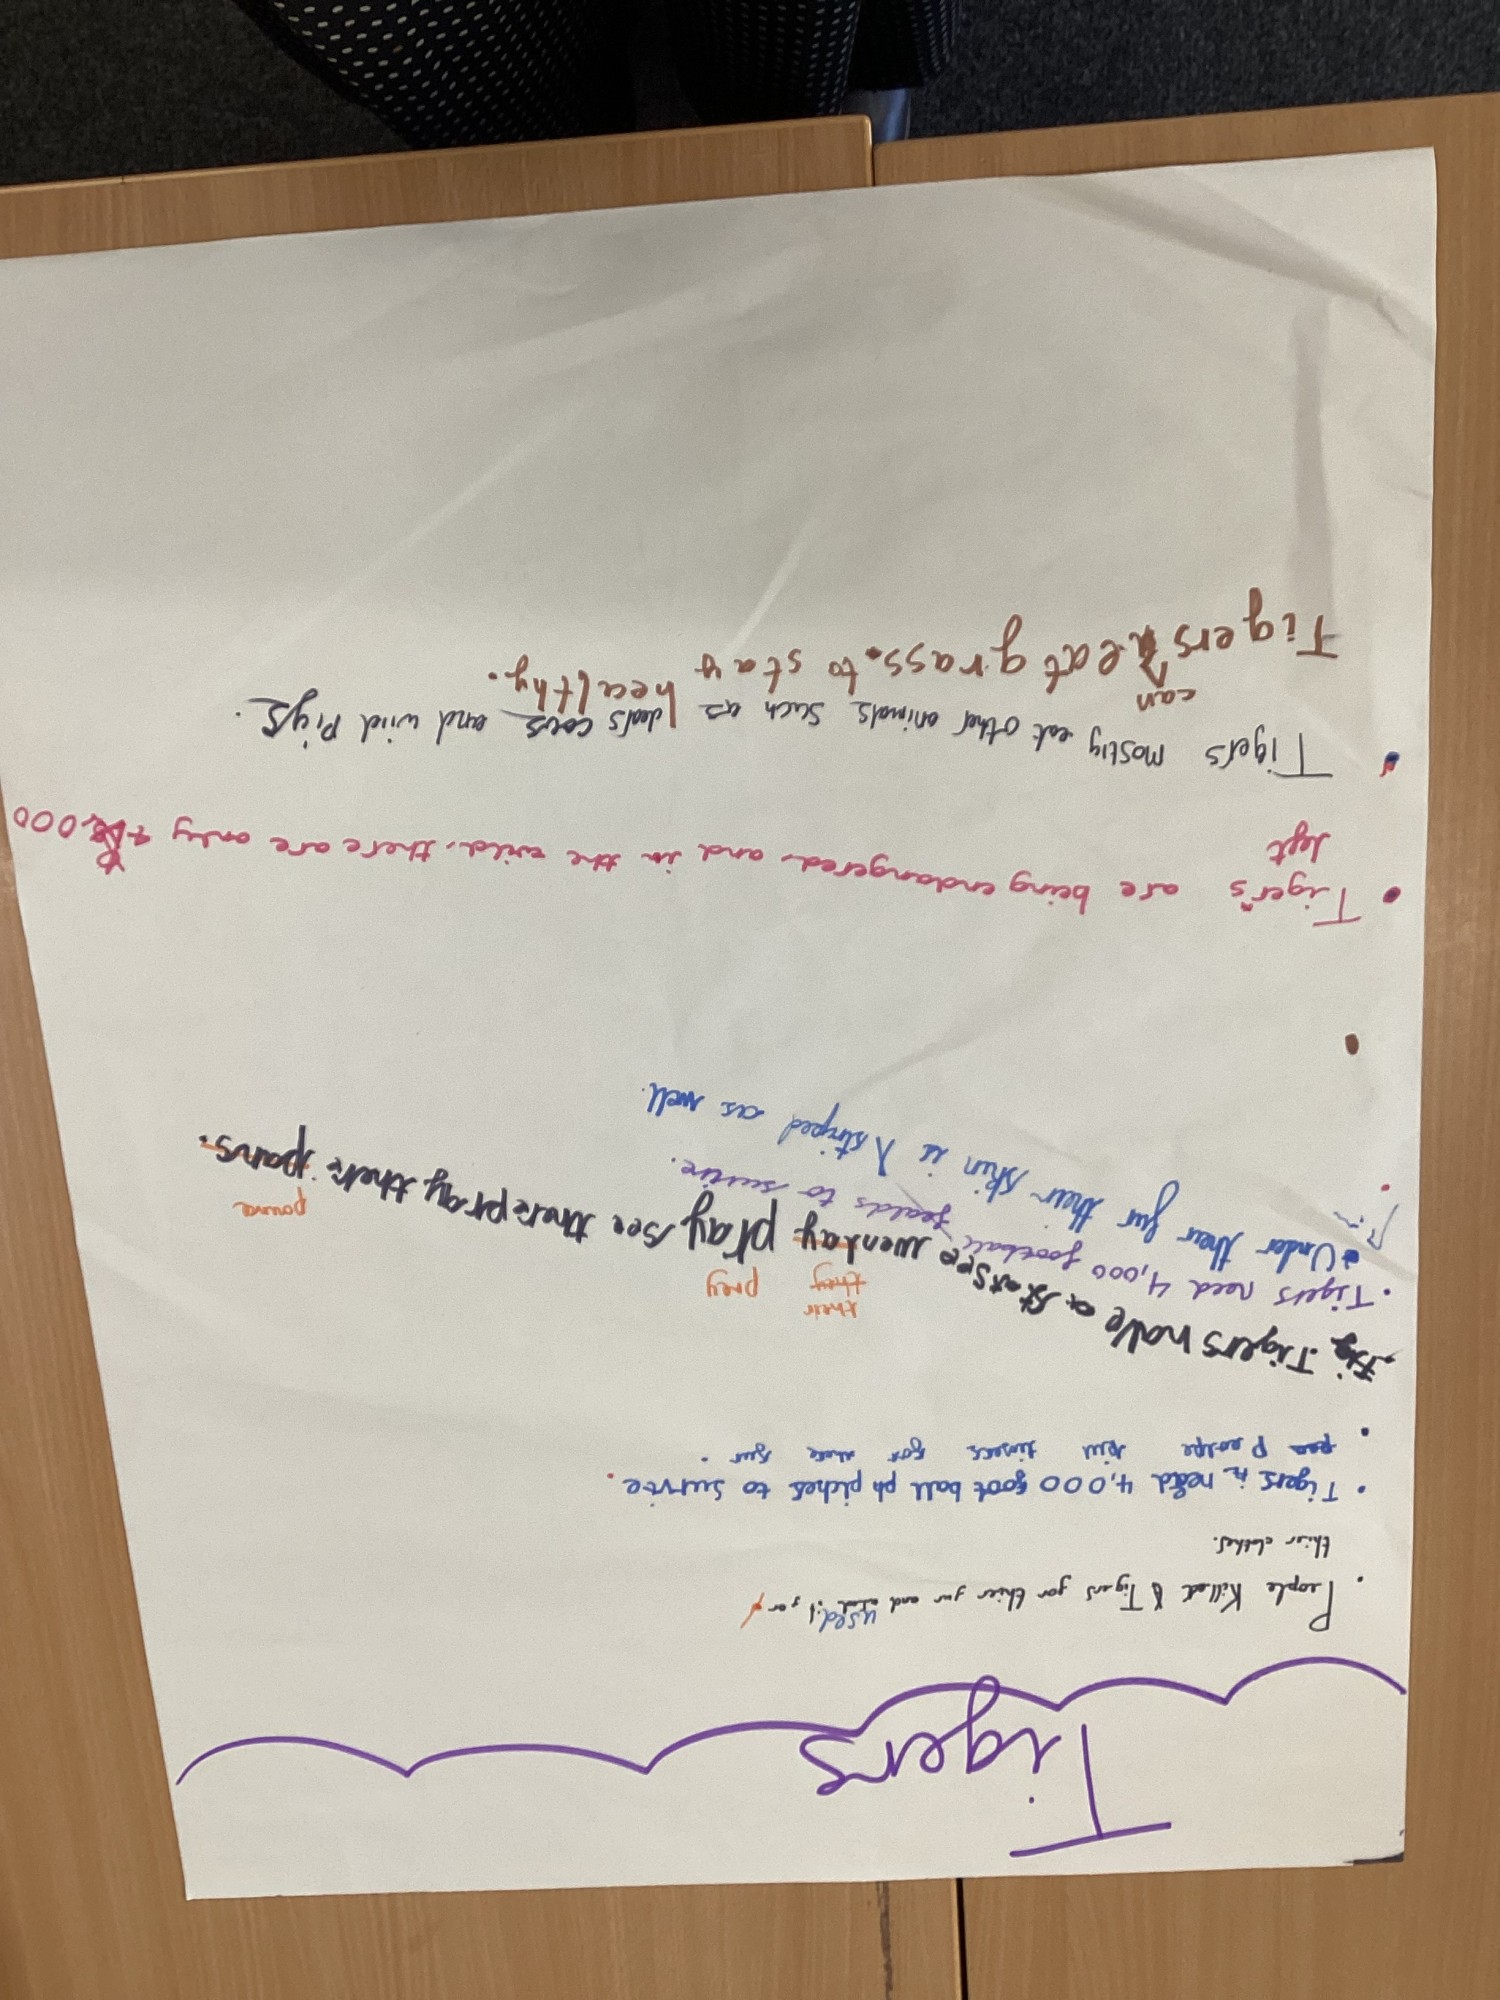 Tigers
• People Killed Tigers for thier fur and used it for
thier clothes.
• Tigers need 4,000 foot ball ph piches to survive.
• Peolpe kill tigers for there fur.
Tigers have a play see there pray there pans.
their
they
prey
pounce
• Tigers need 4,000 football fealds to survive.
• Under their fur their skin is striped as well.
• Tigers are being endangered, and in the wild, there are only ,000
left
• Tigers mostly eat other animals such as deers cows and wild Pigs.
can
Tigers eat grass to stay
healthy.